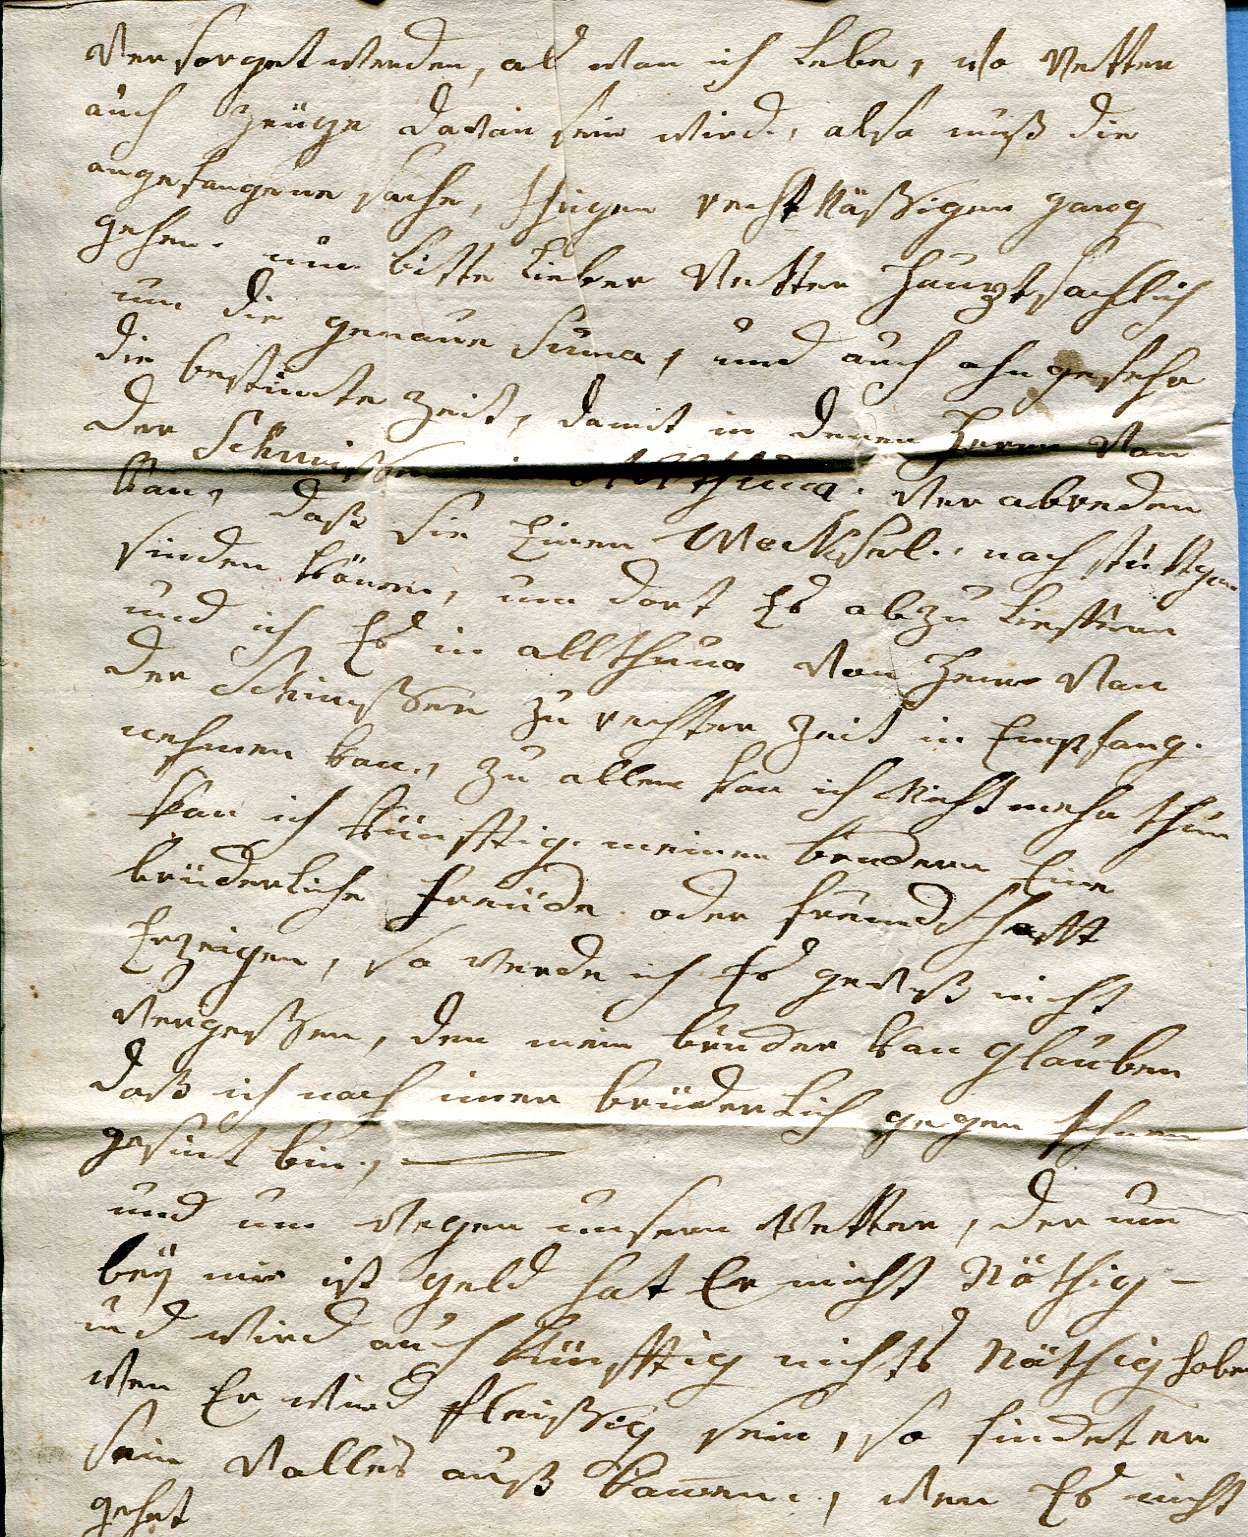 Versorget werden, als wan ich Lebe, wo Vetter
auch zeüge davon sein wird, also muß die
angefangene sache, Ihrigen rechtMäßigen gang
gehen. nur bitte Lieber Vetter Hauptsachlich
um die genaue Suma, und auch ohngefehr
die bestimte zeit, damit in denen Herrn Van
der Schmissen in Allthona. Verabreden
kan, daß sie Einen Weckhsel. nach stuttgar
finden könen, um dort Es abzu Liefern
und ich Es in allthona Von Herrn Van
der Schmißen zu rechter zeit in Empfang.
nehmen kan, zu allem kan ich Nicht mehr thun
kan ich künfftig. meinen brudern Eine
brüderliche freüde oder freundschafft
Erzeigen, so werde ich Es gewiß nicht
Vergeßen, den mein bruder kan glauben
daß ich noch imer brüderlich gegen Ihnen
gesint bin,
und um wegen unsern Vetter, der nun
beÿ mir ist geld hat Er nicht Nöthig –
und wird auch künfftig nichts Nöthig haben
wen Er wird fleißig sein, so findet er
sein Volles auß komen, wen Es nicht
gehet